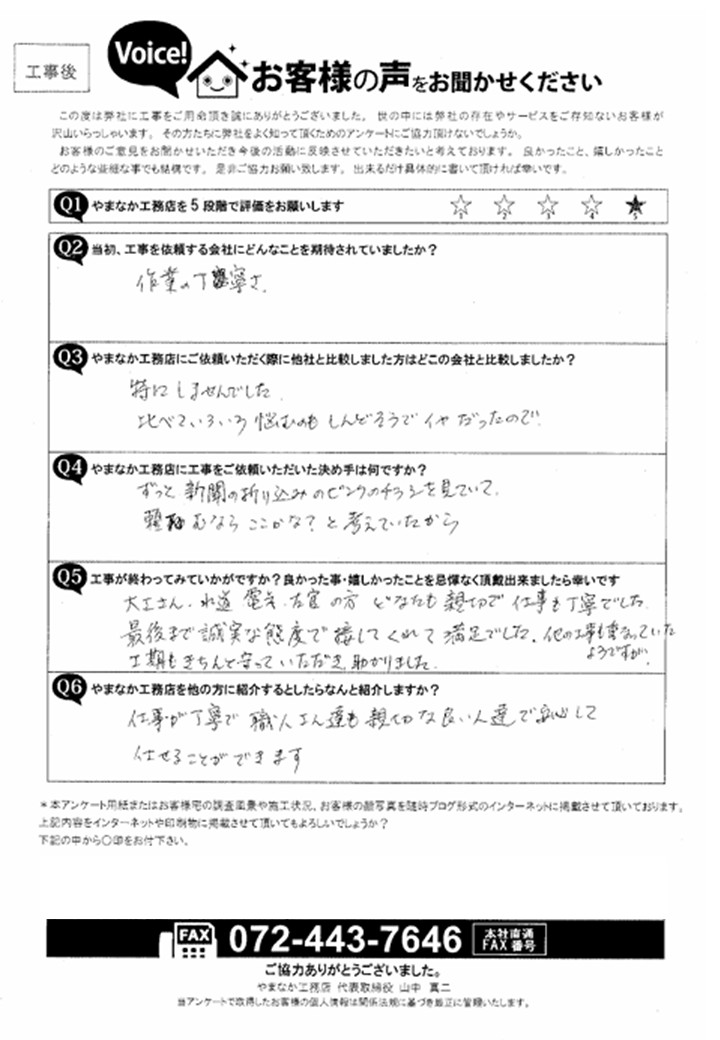 工事後
Voice!
お客様の声をお聞かせください
この度は弊社に工事をご用命頂き誠にありがとうございました。世の中には弊社の存在やサービスをご存知ないお客様が
沢山いらっしゃいます。その方たちに弊社をよく知って頂くためのアンケートにご協力頂けないでしょうか。
お客様のご意見をお聞かせいただき今後の活動に反映させていただきたいと考えております。良かったこと、嬉しかったこと
どのような些細な事でも結構です。是非ご協力お願い致します。出来るだけ具体的に書いて頂ければ幸いです。
Q1 やまなか工務店を5段階で評価をお願いします
1 2 3 4 5
Q2 当初、工事を依頼する会社にどんなことを期待されていましたか?
作業の丁寧さ.
Q3 やまなか工務店にご依頼いただく際に他社と比較しました方はどこの会社と比較しましたか?
特にしませんでした.
比べていろいろ悩むのもしんどそうでイヤだったので.
Q4 やまなか工務店に工事をご依頼いただいた決め手は何ですか?
ずっと新聞の折り込みのピンクのチラシを見ていて.
頼むならここかな?と考えていたから
Q5 工事が終わってみていかがですか?良かった事・嬉しかったことを忌憚なく頂戴出来ましたら幸いです
大工さん.水道 電気.左官の方 どなたも親切で仕事も丁寧でした.
最後まで誠実な態度で接してくれて満足でした.他の工事も重なっていた
ようですが.
工期もきちんと守っていただき助かりました.
Q6 やまなか工務店を他の方に紹介するとしたらなんと紹介しますか?
仕事が丁寧で職人さん達も親切な良い人達で安心して
任せることができます
*本アンケート用紙またはお客様宅の調査風景や施工状況、お客様の顔写真を随時ブログ形式のインターネットに掲載させて頂いております。
上記内容をインターネットや印刷物に掲載させて頂いてもよろしいでしょうか?
下記の中から〇印をお付下さい。
FAX 072-443-7646 本社直通
FAX番号
ご協力ありがとうございました。
やまなか工務店 代表取締役 山中 真二
当アンケートで取得したお客様の個人情報は関係法規に基づき厳正に管理いたします。